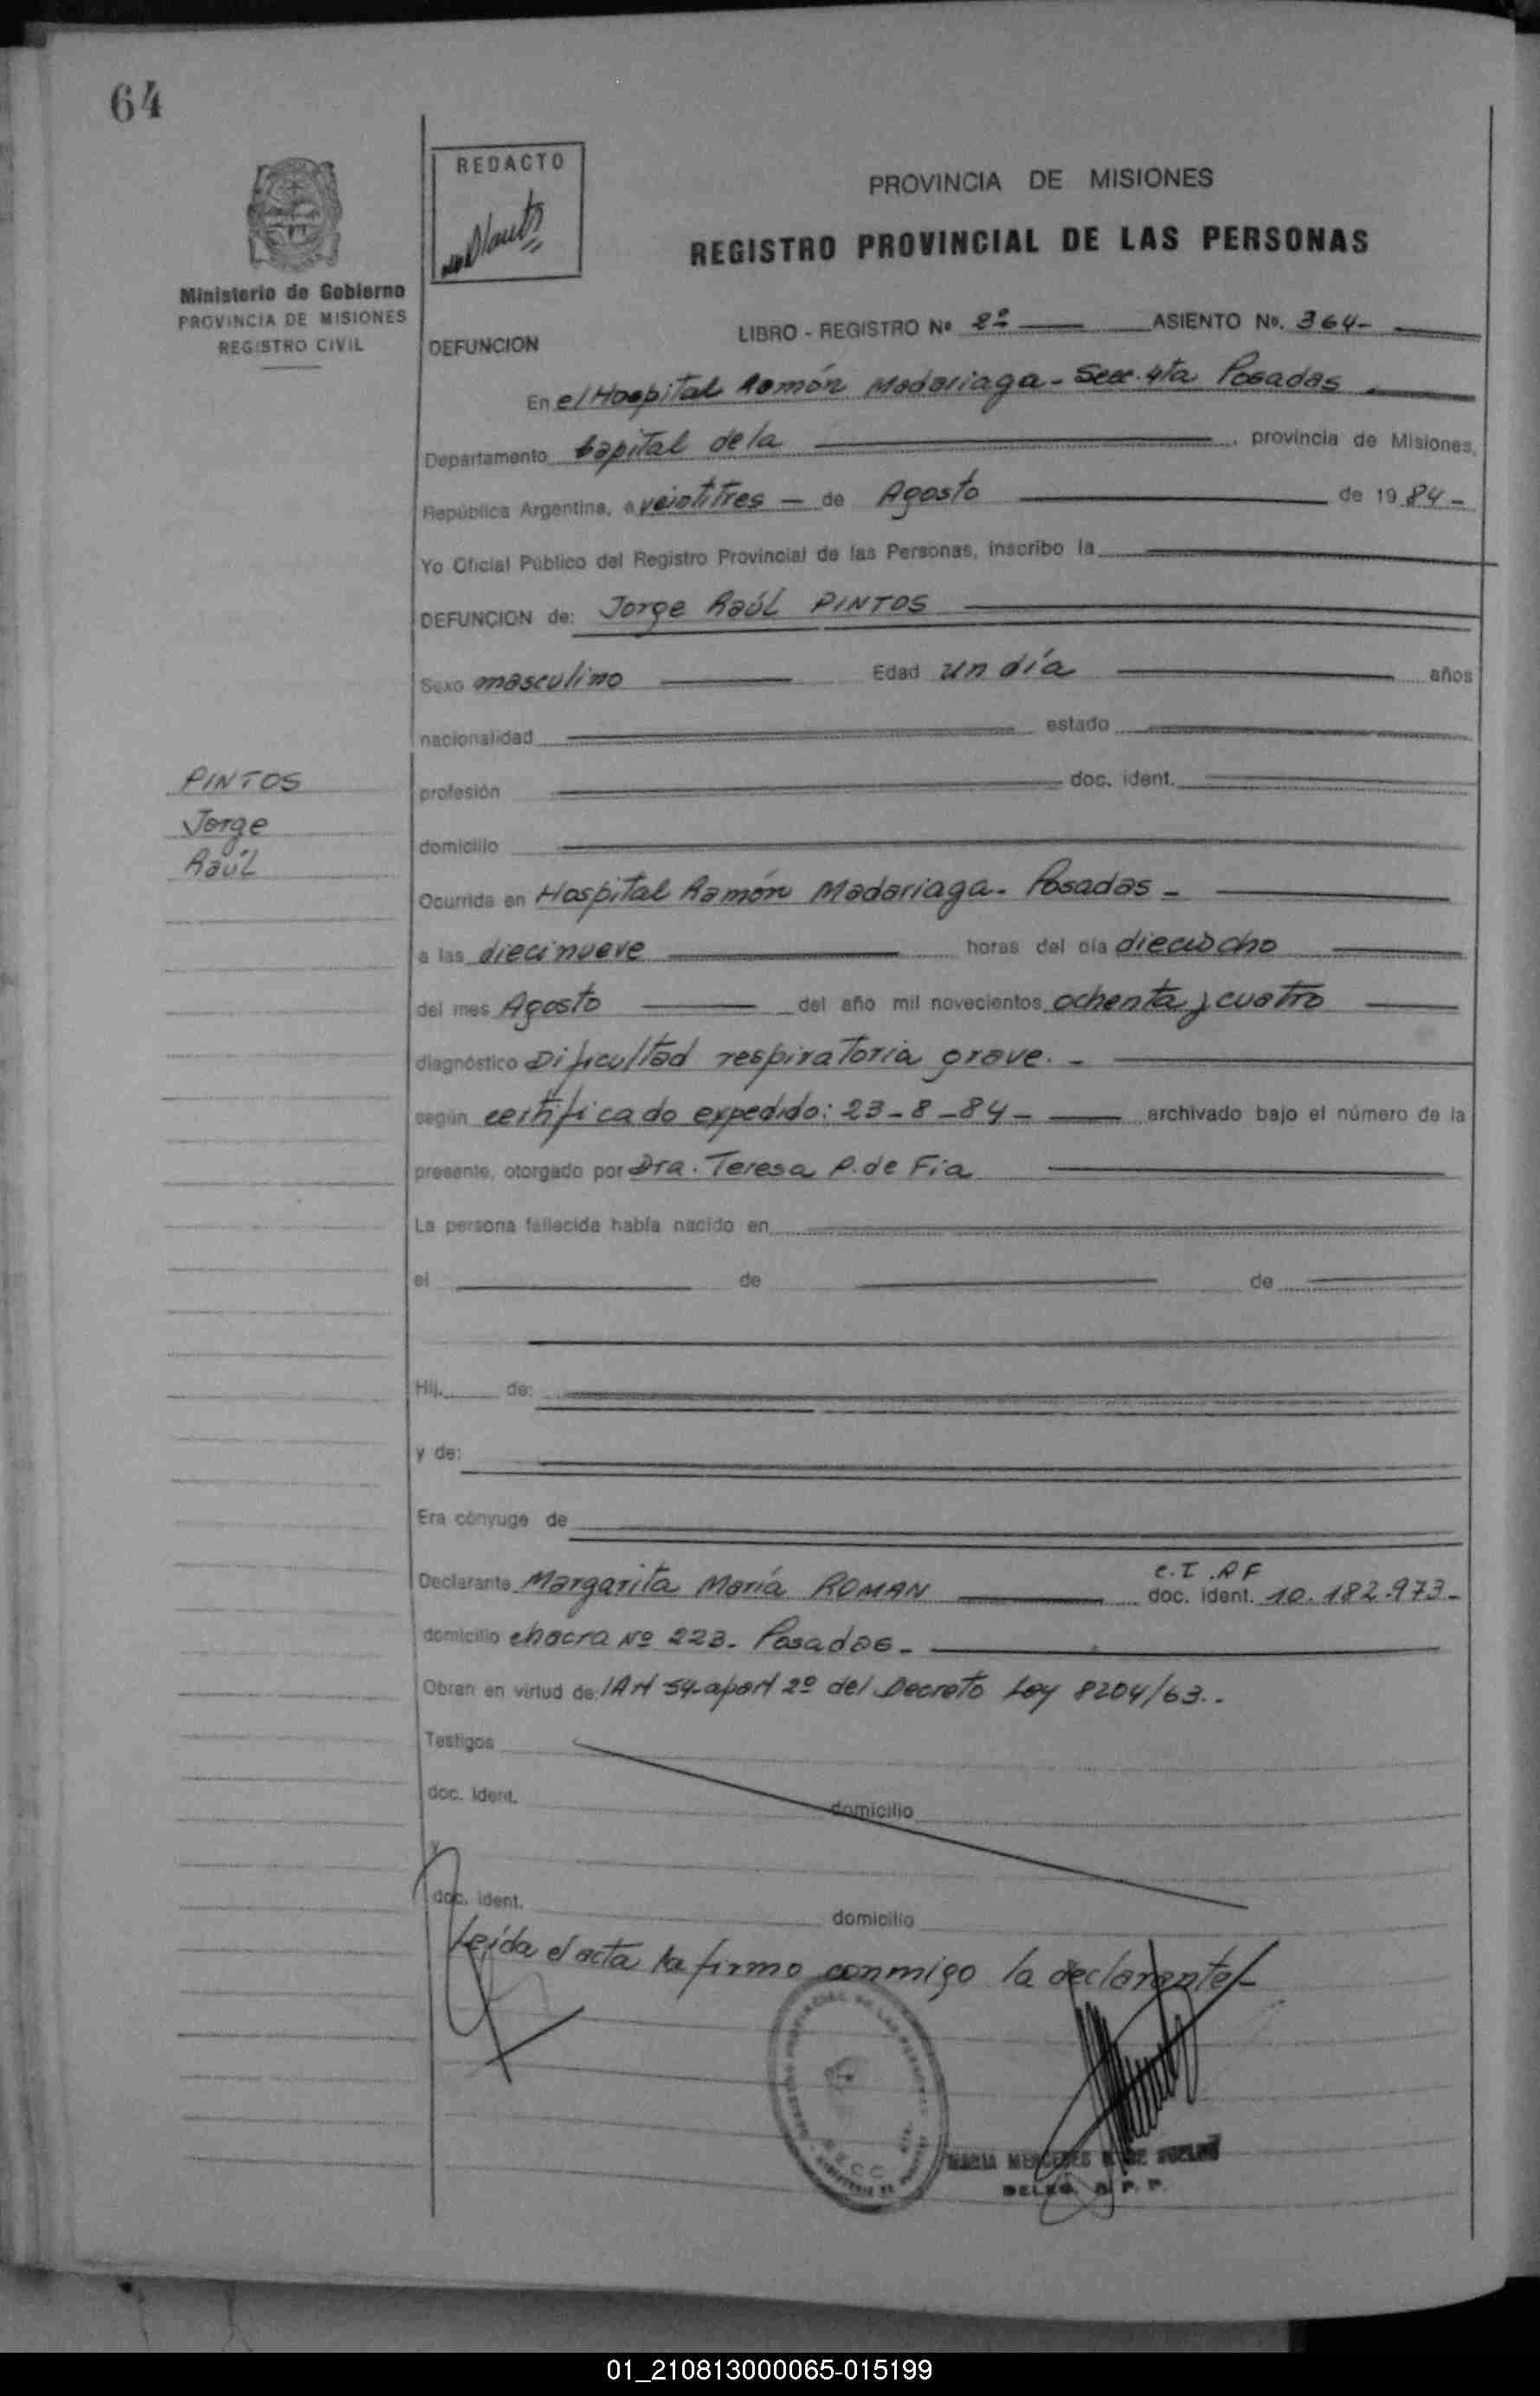 64
REDACTO
PROVINCIA DE MISIONES
REGISTRO PROVINCIAL DE LAS PERSONAS
Ministerio de Gobierno
PROVINCIA DE MISIONES
REGISTRO CIVIL
LIBRO - REGISTRO Nº 2º ASIENTO Nº. 364-
DEFUNCION
En el Hospital Ramón Madariaga - Secc. 4ta Posadas
Departamento Capital de la , provincia de Misiones,
República Argentina, a veintitres - de Agosto de 1984-
Yo Oficial Público del Registro Provincial de las Personas, inscribo la
DEFUNCION de: Jorge Raúl PINTOS
Sexo masculino Edad un día años
nacionalidad estado
PINTOS
Jorge
Raúl
profesión doc. ident.
domicilio
Ocurrida en Hospital Ramón Madariaga - Posadas -
a las diecinueve horas del día dieciocho
del mes Agosto del año mil novecientos ochenta y cuatro
diagnóstico Dificultad respiratoria grave. -
según certificado expedido: 23-8-84- archivado bajo el número de la
presente, otorgado por Dra. Teresa P. de Fia
La persona fallecida había nacido en
el de de
Hij. de:
y de:
Era cónyuge de
Declarante Margarita María ROMAN C.I.PF doc. ident. 10.182.973-
domicilio chacra Nº 223- Posadas-
Obran en virtud del Art 54-apart 2º del Decreto Ley 8204/63.-
Testigos
doc. ident. domicilio
y
doc. ident. domicilio
Leída el acta la firmo conmigo la declarante-
MARIA MERCEDES DE
DELEG. R. P. P.
01_210813000065-015199